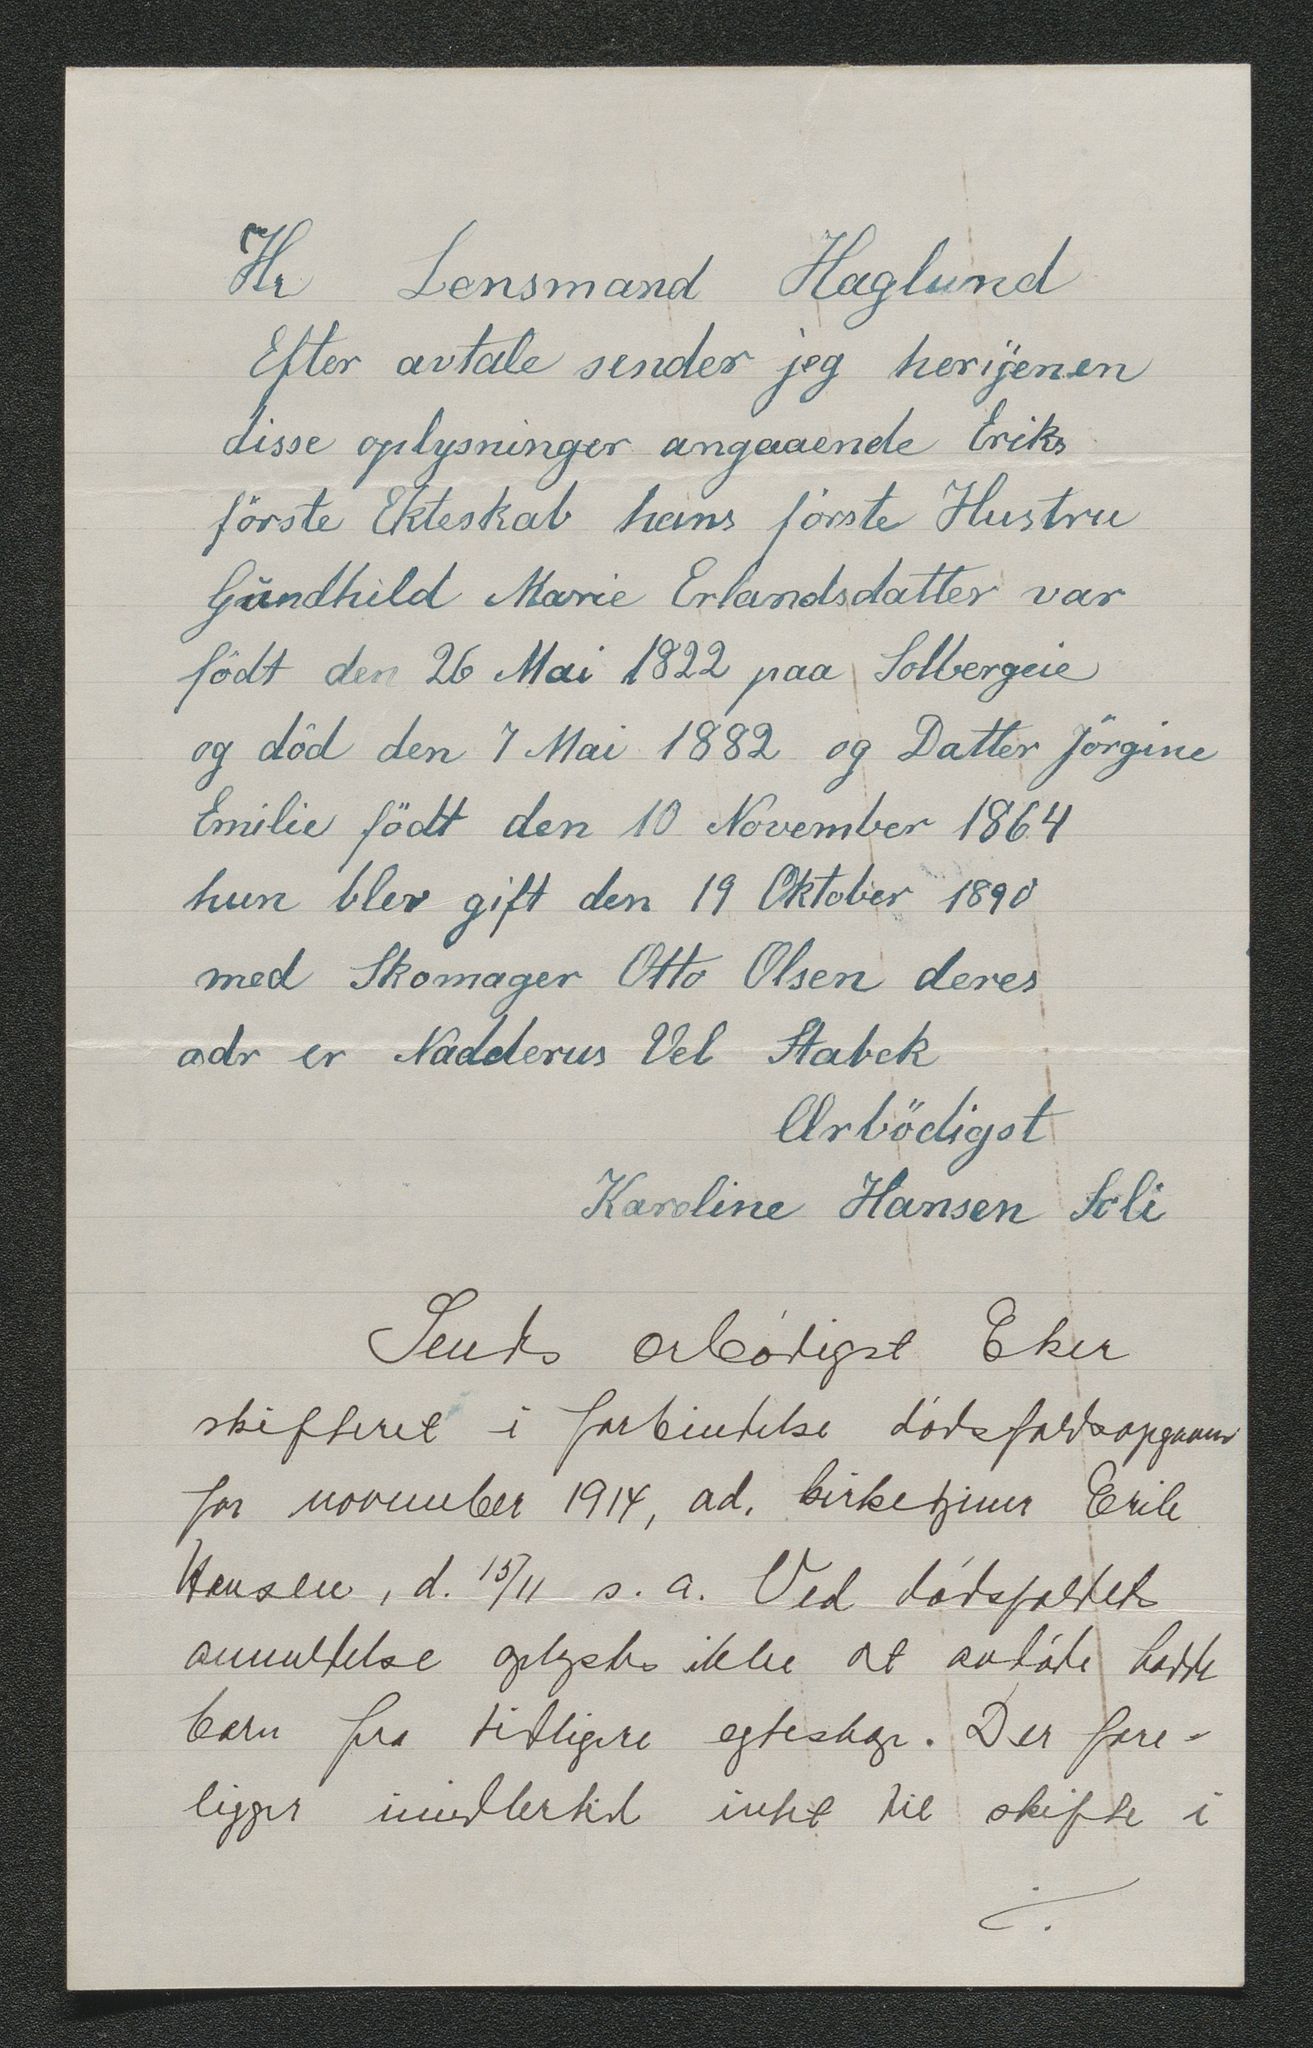 Hr Lensmand Haglund
Efter avtale sender jeg herijenen
disse oplysninger angaaende Eriks
förste Ekteskab hans förste Hustru
Gundhild Marie Erlandsdatter var
födt den 26 Mai 1822 paa Solbergeie
og död den 7 Mai 1882 og Datter Jörgine
Emilie födt den 10 November 1864
hun blev gift den 19 Oktober 1890
med Skomager Otto Olsen deres
adr er Nadderus Vel Stabek
Ærbödigst
Karoline Hansen Soli
Sendes ærbødigst Eker
skifteret i forbindelse dødsfaldsopgaven
for november 1914, ad. birkeeier Erik
Hansen, d. 15/11 s. a. Ved dødsfaldets
anmeldelse oplystes ikke at avdøde hadde
barn fra tidligere egteskap. Der fore-
ligger imidlertid intet til skifte i